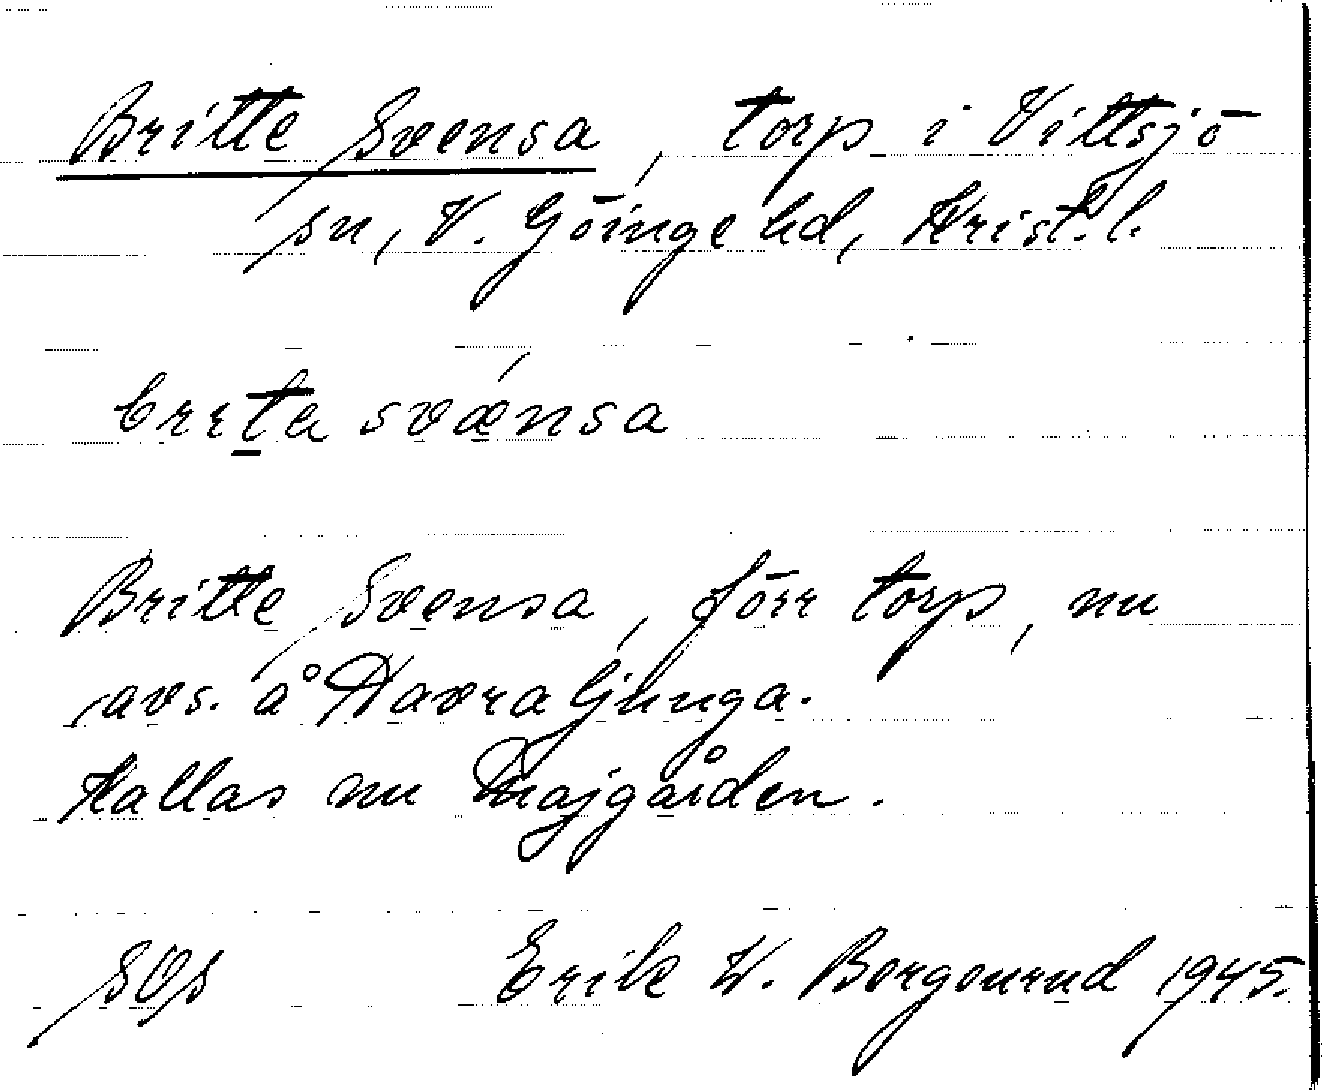 Britte Svensa, torp i Vittsjö
sn, V. Göinge hd, Krist. l.
svænsa
Britte Svensa, förr torp, nu
avs. å Havraljunga.
Kallas nu Majgården.
SOS Erik W. 1945.